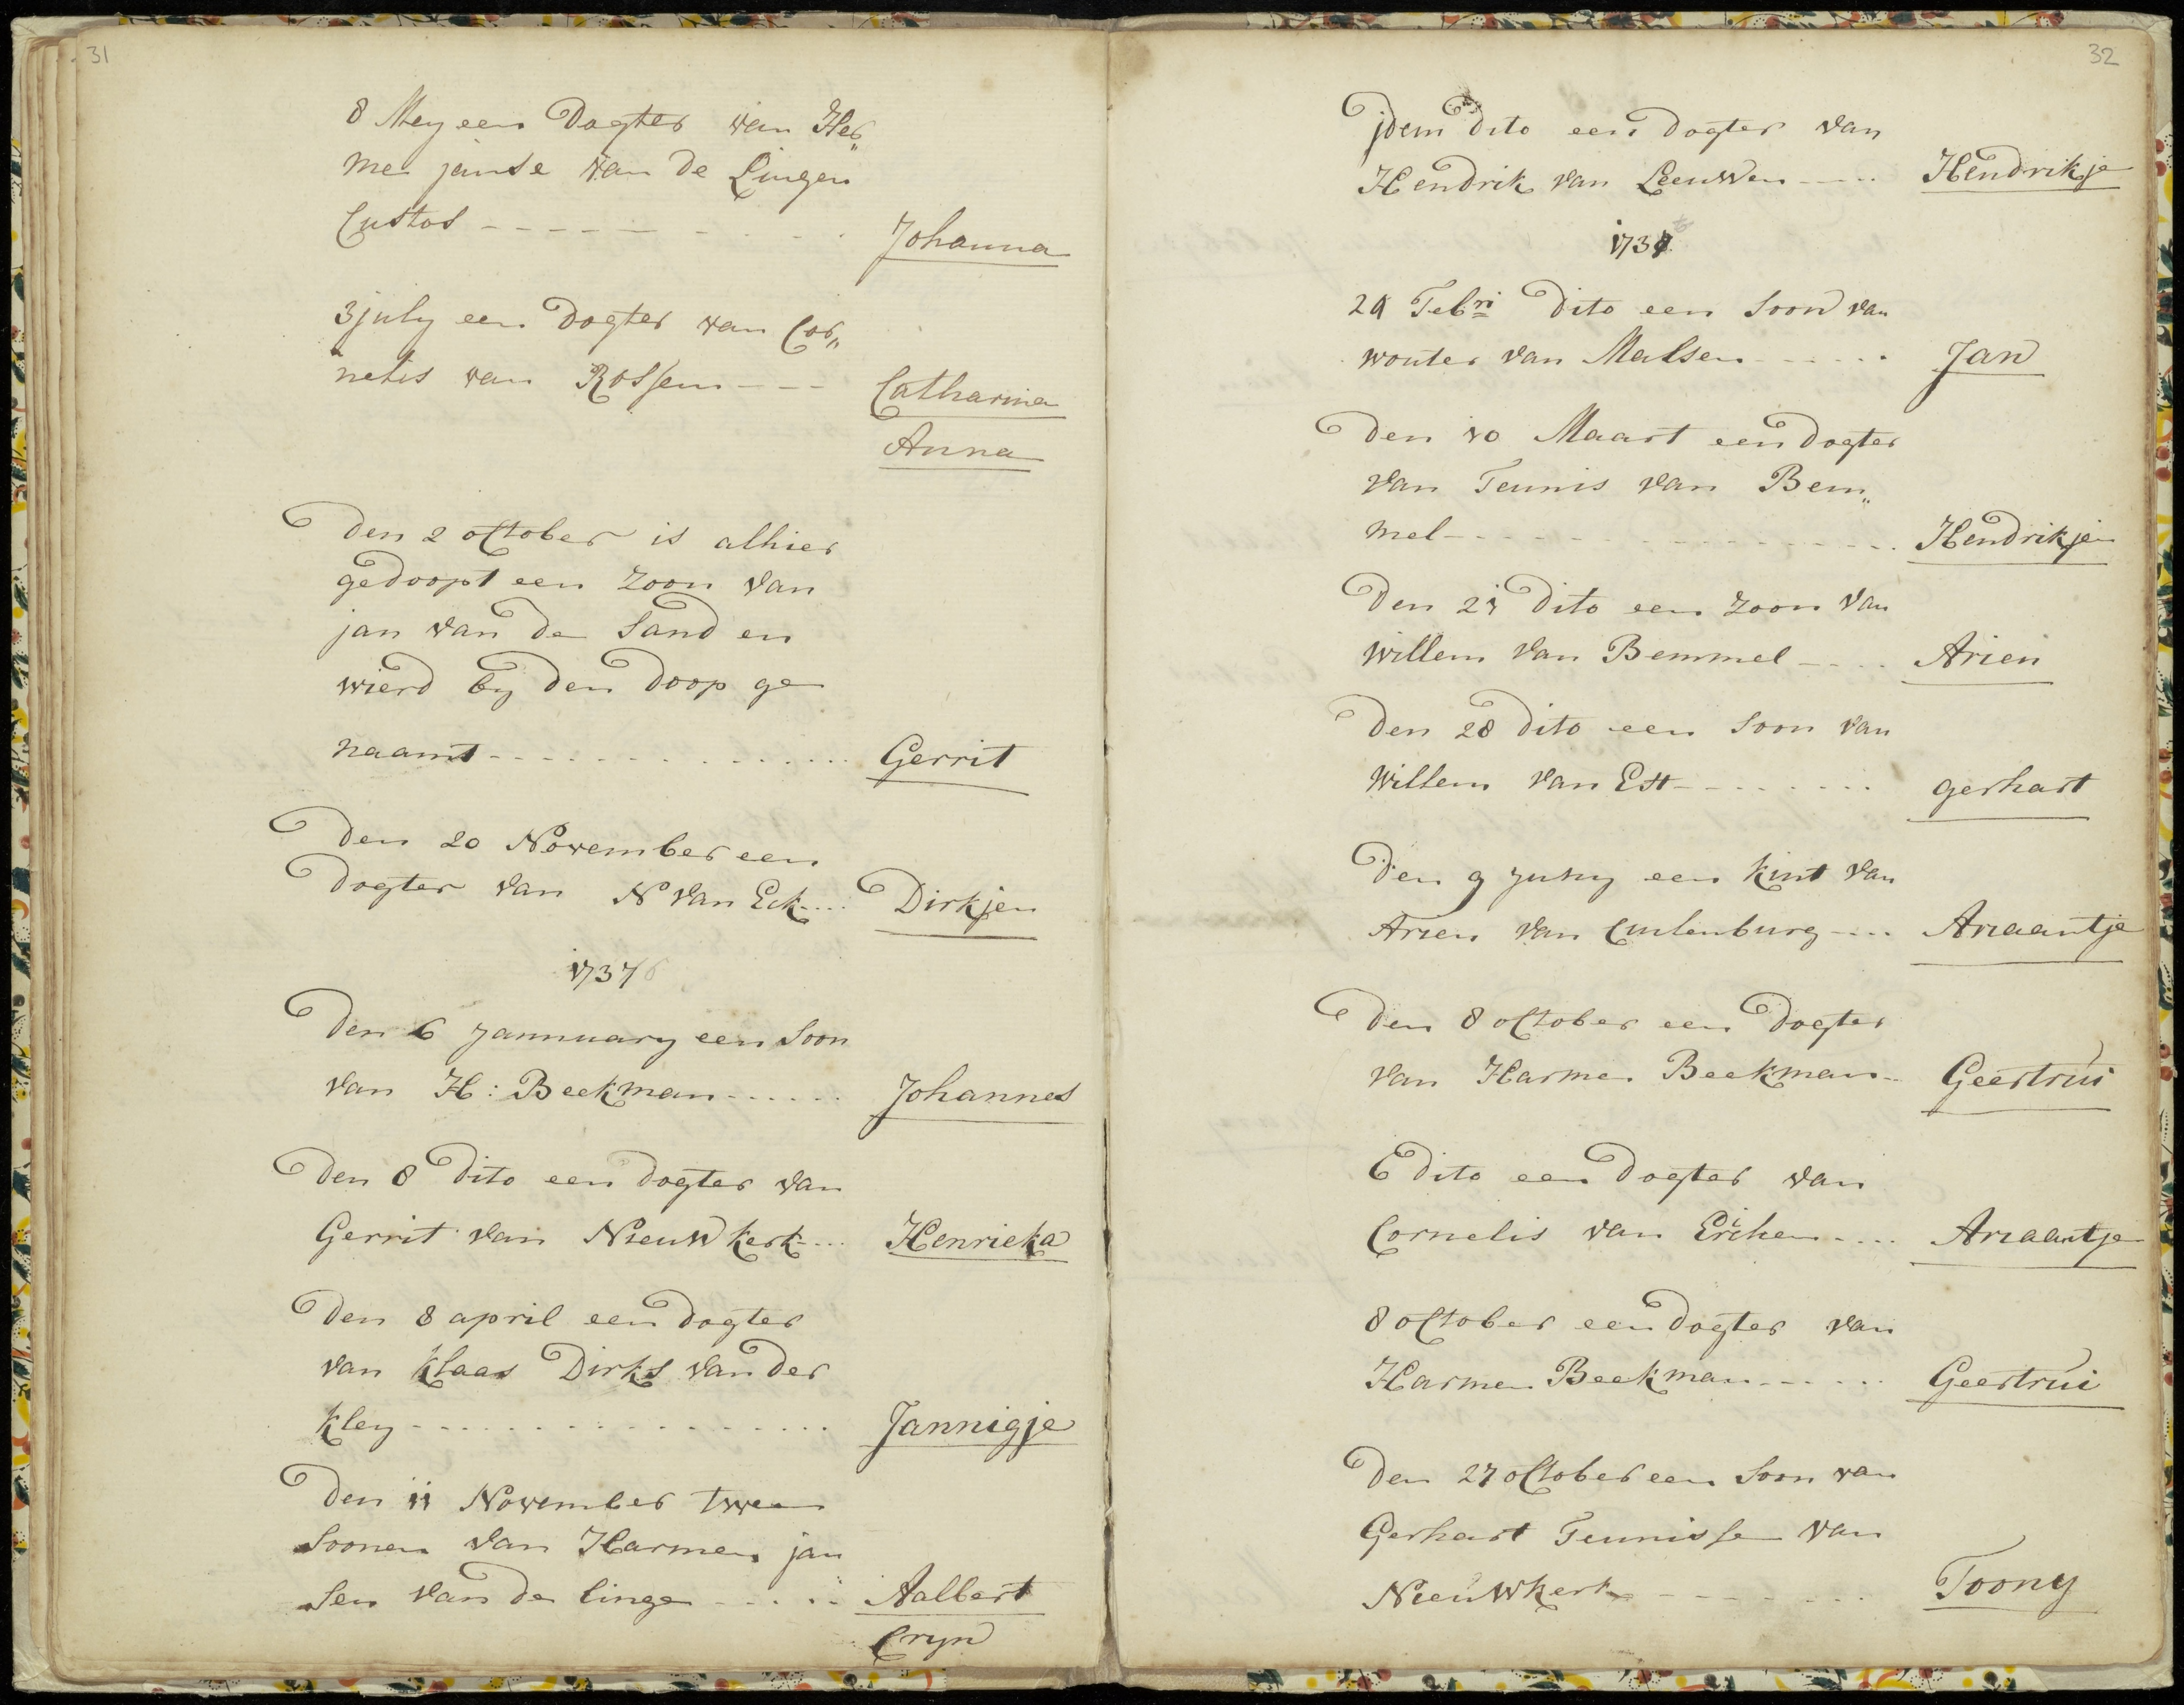 31
8 Mey een Dogter van Her„
men janse van de Lingen
Custos Johanna
3 july een Dogter van Cor„
nelis van Rossem Catharina
Anna
Den 2 october is alhier
gedoopt een Zoon van
jan van de Sand en
wierd by den doop ge
naamt Gerrit
Den 20 November een
Dogter van N van Eck Dirkjen
1737 6
Den 6 jannuary een Soon
van H: Beekman Johannes
Den 8 dito een dogter van
Gerrit van Nieuwkerk Henrieka
Den 8 april een dogter
van Klaas Dirks van der
Kley Jannigje
Den 11 November twee
Soonen van Harmen jan
sen van de linge Aalbert
Cryn
32
jdem dito een dogter van
Hendrik van Leeuwen Hendrikje
1737
29 Febri dito een Soon van
wouter van Malsen Jan
Den 10 Maart een dogter
van Teunis van Bem„
mel Hendrikjen
Den 21 dito een Zoon van
Willem van Bemmel Arien
Den 28 dito een Soon van
Willem van Est gerhart
Den 9 juny een kint van
Arien van Cuilenburg Ariaantje
Den 8 october een Dogter
van Harmen Beekman Geertrui
6 dito een Dogter van
Cornelis van Ericken Ariaantje
8 october een dogter van
Harmen Beekman Geertrui
Den 27 october een Soon van
Gerhart Teunisse van
Nieuwkerk Toony